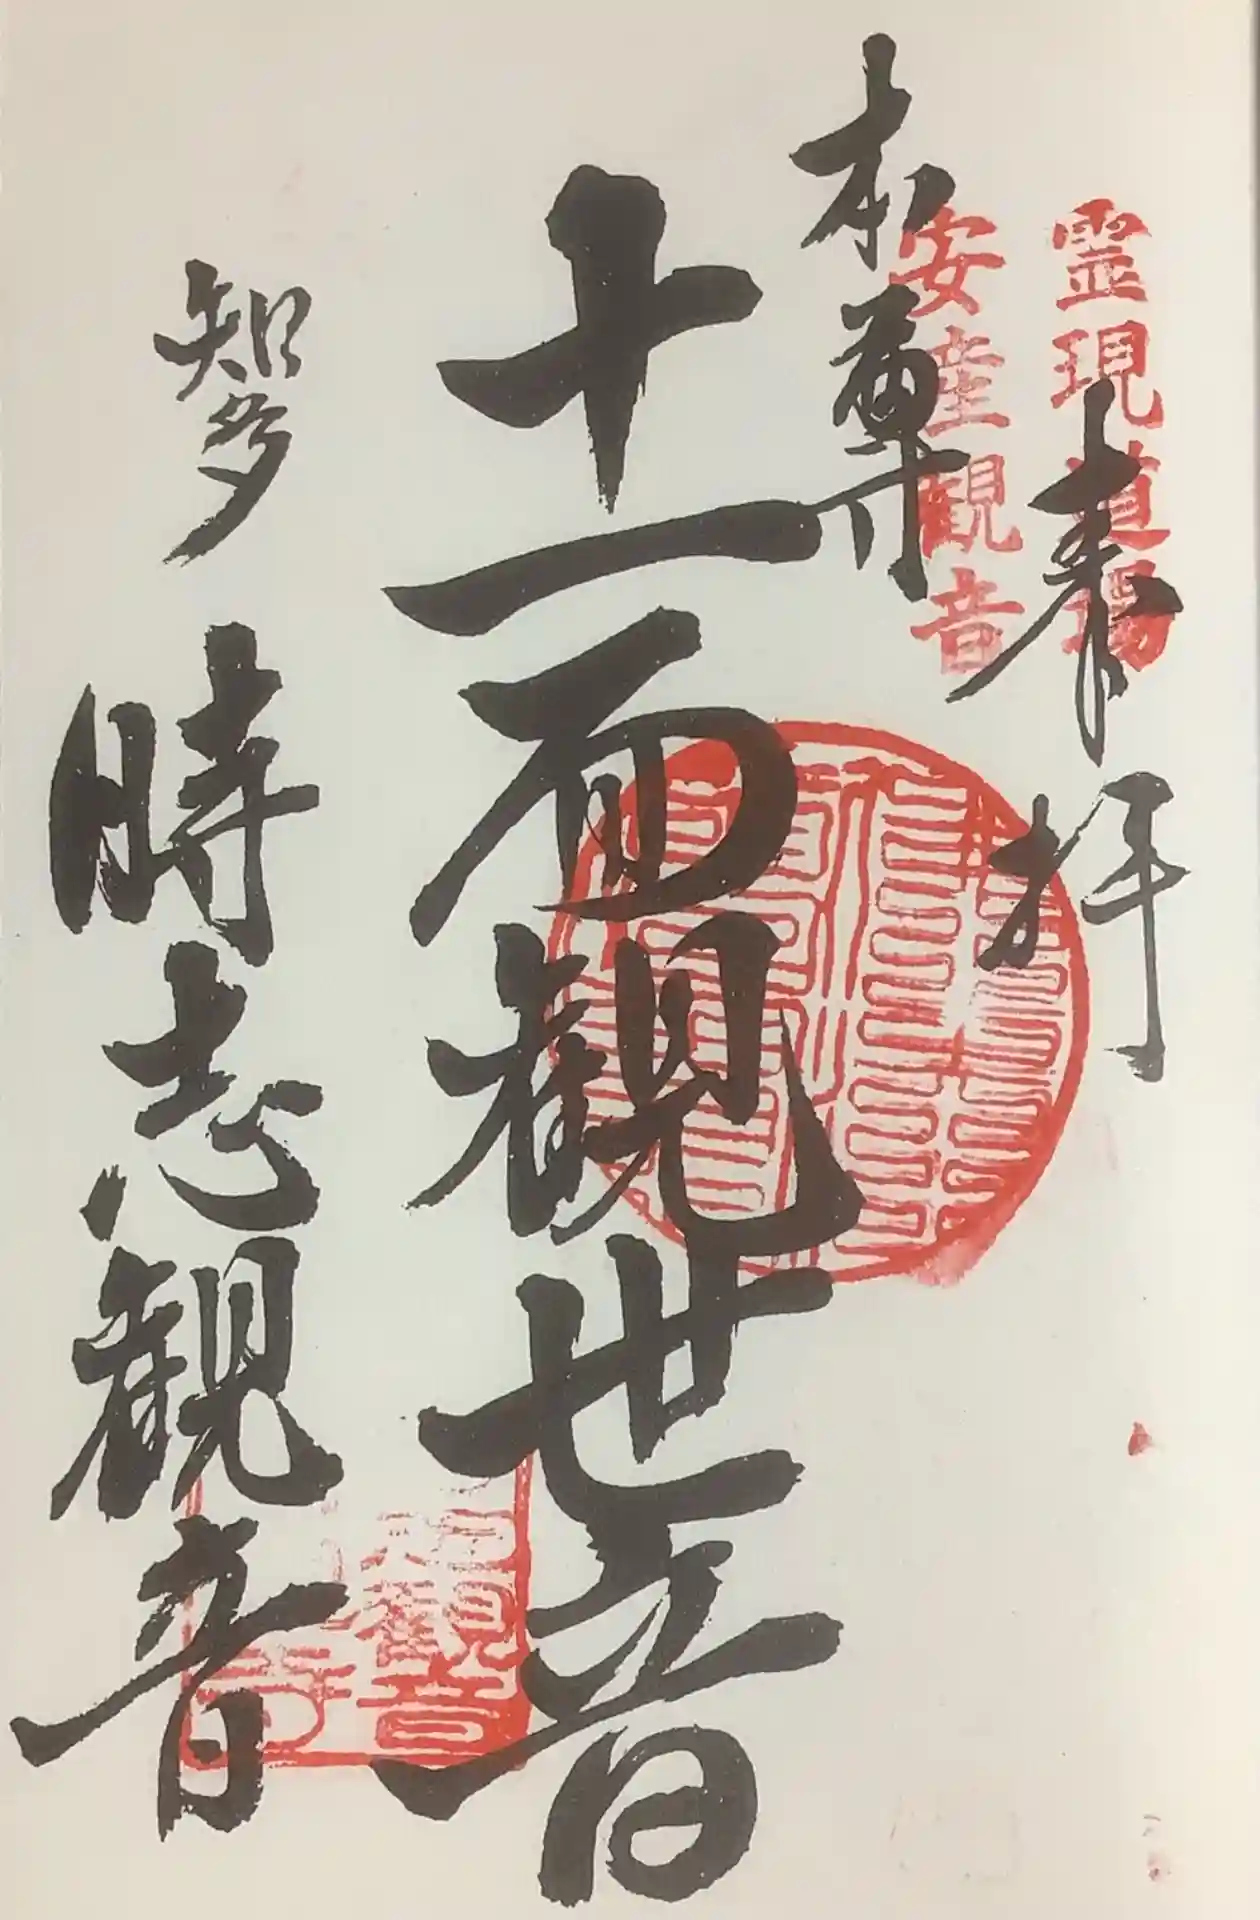 霊現道場
安産観音
奉拝
本尊
十一面観世音
知多
時志観音
観音
寺